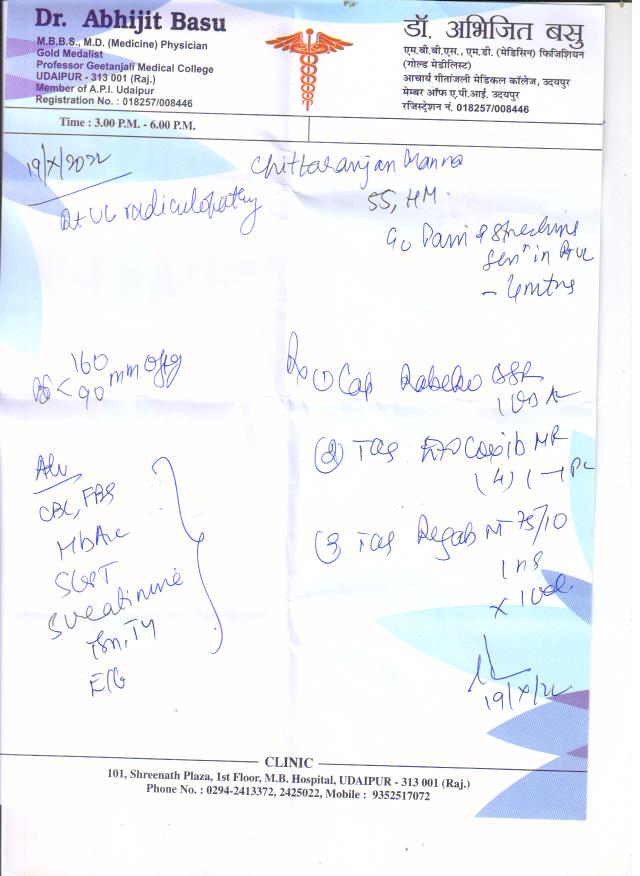 Dr. Abhijit Basu
M.B.B.S., M.D. (Medicine) Physician
Gold Medalist
Professor Geetanjali Medical College
UDAIPUR - 313 001 (Raj.)
Member of A.P.I. Udaipur
Registration No. : 018257/008446
डॉ. अभिजित बसु
एम.बी.बी.एस., एम.डी. (मेडिसिन) फिजिशियन
(गोल्ड मेडीलिस्ट)
आचार्य गीतांजली मेडिकल कॉलेज, उदयपुर
मेम्बर ऑफ ए.पी.आई. उदयपुर
रजिस्ट्रेशन नं. 018257/008446
Time : 3.00 P.M. - 6.00 P.M.
19/X/2022
Chittaranjan Manna
55, HM
Rt UL radiculopathy
Pain &
in Rt UL
160
90 mm of Hg
Rx ① Cap
② Tab MR
③ Tab NT 75/10
Adv
CBC, FBS
HbA1c
SGPT
S creatinine
ECG
19/X/22
CLINIC
101, Shreenath Plaza, 1st Floor, M.B. Hospital, UDAIPUR - 313 001 (Raj.)
Phone No. : 0294-2413372, 2425022, Mobile : 9352517072